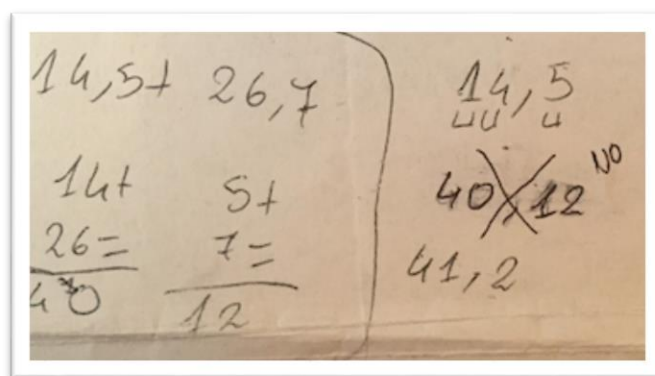 14,5+ 26,7
14+
26=
40
5+
7=
12
14,5
40,12 NO
41,2